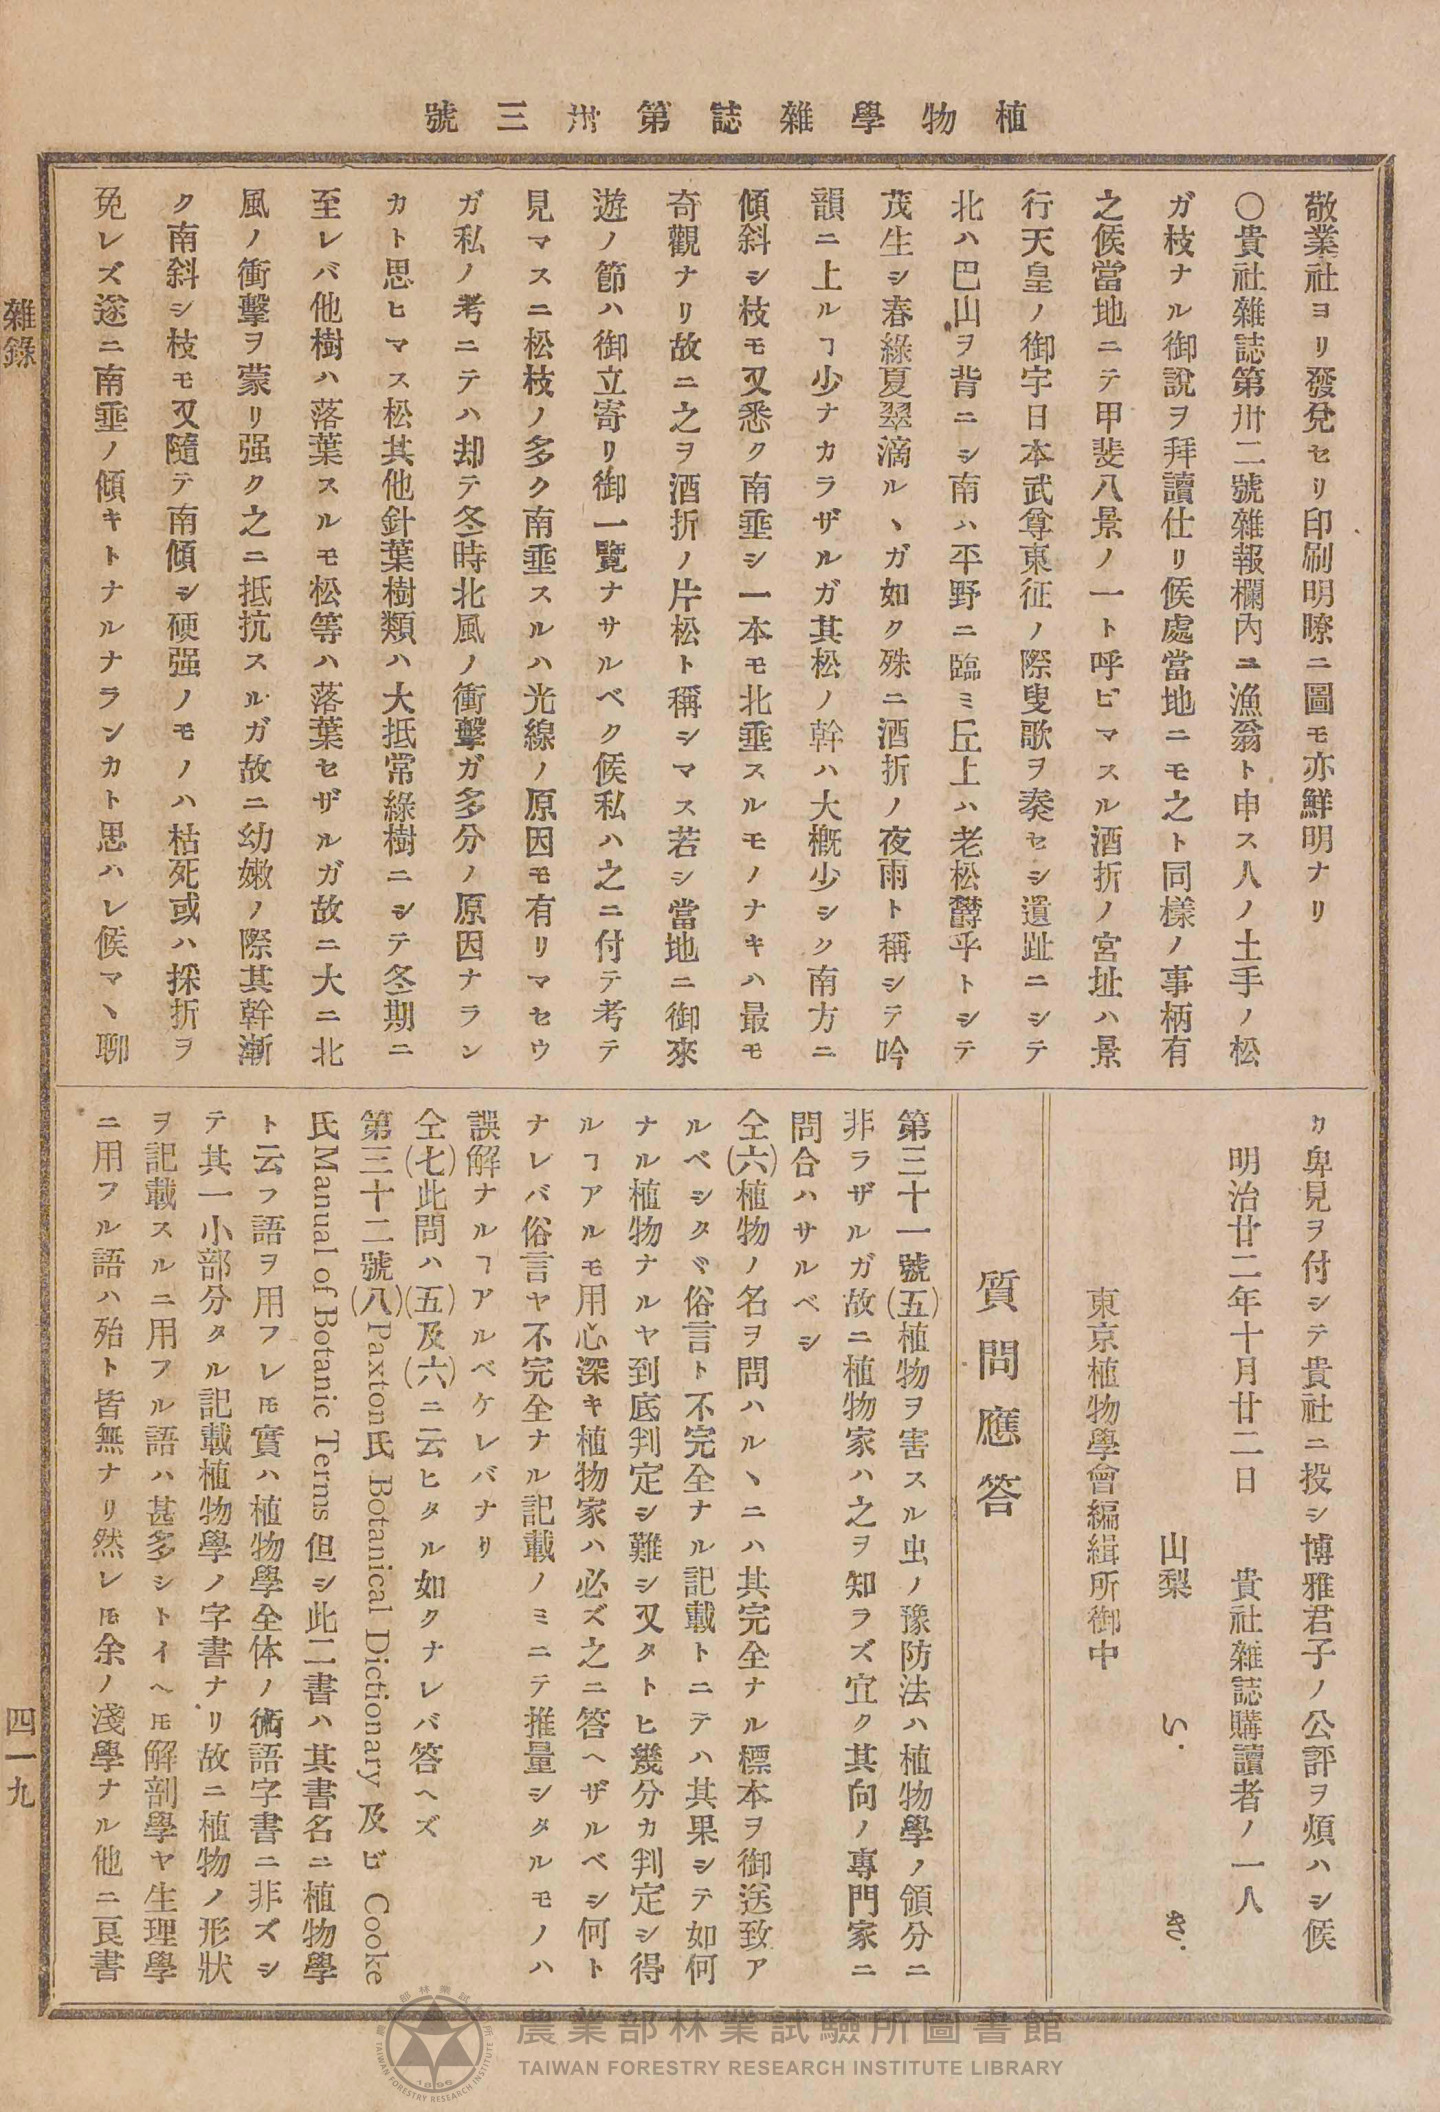 植物學雜誌第卅三號
敬業社ヨリ發兌セリ印刷明瞭ニ圖モ亦鮮明ナリ
〇貴社雜誌第卅二號雜報欄內ニ漁翁ト申ス人ノ土手ノ松
ガ枝ナル御說ヲ拜讀仕リ候處當地ニモ之ト同樣ノ事柄有
之候當地ニテ甲斐八景ノ一ト呼ビマスル酒折ノ宮址ハ景
行天皇ノ御宇日本武尊東征ノ際叟歌ヲ奏セシ遺趾ニシテ
北ハ巴山ヲ背ニシ南ハ平野ニ臨ミ丘上ハ老松欝乎トシテ
茂生シ春綠夏翠滴ルヽガ如ク殊ニ酒折ノ夜雨ト稱シテ吟
韻ニ上ルヿ少ナカラザルガ其松ノ幹ハ大概少シク南方ニ
傾斜シ枝モ又悉ク南垂シ一本モ北垂スルモノナキハ最モ
奇觀ナリ故ニ之ヲ酒折ノ片松ト稱シマス若シ當地ニ御來
遊ノ節ハ御立寄リ御一覽ナサルベク候私ハ之ニ付テ考テ
見マスニ松枝ノ多ク南垂スルハ光線ノ原因モ有リマセウ
ガ私ノ考ニテハ却テ冬時北風ノ衝擊ガ多分ノ原因ナラン
カト思ヒマス松其他針葉樹類ハ大抵常綠樹ニシテ冬期ニ
至レバ他樹ハ落葉スルモ松等ハ落葉セザルガ故ニ大ニ北
風ノ衝擊ヲ蒙リ强ク之ニ抵抗スルガ故ニ幼嫩ノ際其幹漸
ク南斜シ枝モ又隨テ南傾シ硬强ノモノハ枯死或ハ採折ヲ
免レズ遂ニ南垂ノ傾キトナルナランカト思ハレ候マヽ聊
カ卑見ヲ付シテ貴社ニ投シ博雅君子ノ公評ヲ煩ハシ候
明治廿二年十月廿二日　貴社雜誌購讀者ノ一人
山梨　い．き．
東京植物學會編緝所御中
質問應答
第三十一號(五)植物ヲ害スル虫ノ豫防法ハ植物學ノ領分ニ
非ラザルガ故ニ植物家ハ之ヲ知ラズ宜ク其向ノ專門家ニ
問合ハサルベシ
仝(六)植物ノ名ヲ問ハルヽニハ其完全ナル標本ヲ御送致ア
ルベシタヾ俗言ト不完全ナル記載トニテハ其果シテ如何
ナル植物ナルヤ到底判定シ難シ又タトヒ幾分カ判定シ得
ルヿアルモ用心深キ植物家ハ必ズ之ニ答ヘザルベシ何ト
ナレバ俗言ヤ不完全ナル記載ノミニテ推量シタルモノハ
誤解ナルヿアルベケレバナリ
仝(七)此問ハ(五)及(六)ニ云ヒタル如クナレバ答ヘズ
第三十二號(八)Paxton氏 Botanical Dictionary 及ビ Cooke
氏Manual of Botanic Terms 但シ此二書ハ其書名ニ植物學
ト云フ語ヲ用フレㇳモ實ハ植物學全体ノ術語字書ニ非ズシ
テ其一小部分タル記載植物學ノ字書ナリ故ニ植物ノ形狀
ヲ記載スルニ用フル語ハ甚多シトイヘㇳモ解剖學ヤ生理學
ニ用フル語ハ殆ト皆無ナリ然レㇳモ余ノ淺學ナル他ニ良書
雜錄
四一九
農業部林業試驗所圖書館
TAIWAN FORESTRY RESEARCH INSTITUTE LIBRARY